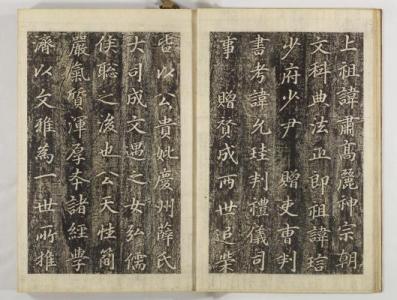 上祖諱肅髙麗神宗朝
文科典法正即祖諱琯
少府少尹 贈吏曹判
書考諱允珪判禮儀司
事 贈賛成両世追榮
皆以公貴妣慶州薛氏
大司成文遇之女弘儒
侯聡之後也公天性簡
嚴氣質渾厚本諸經學
濟以文雅為一世所推